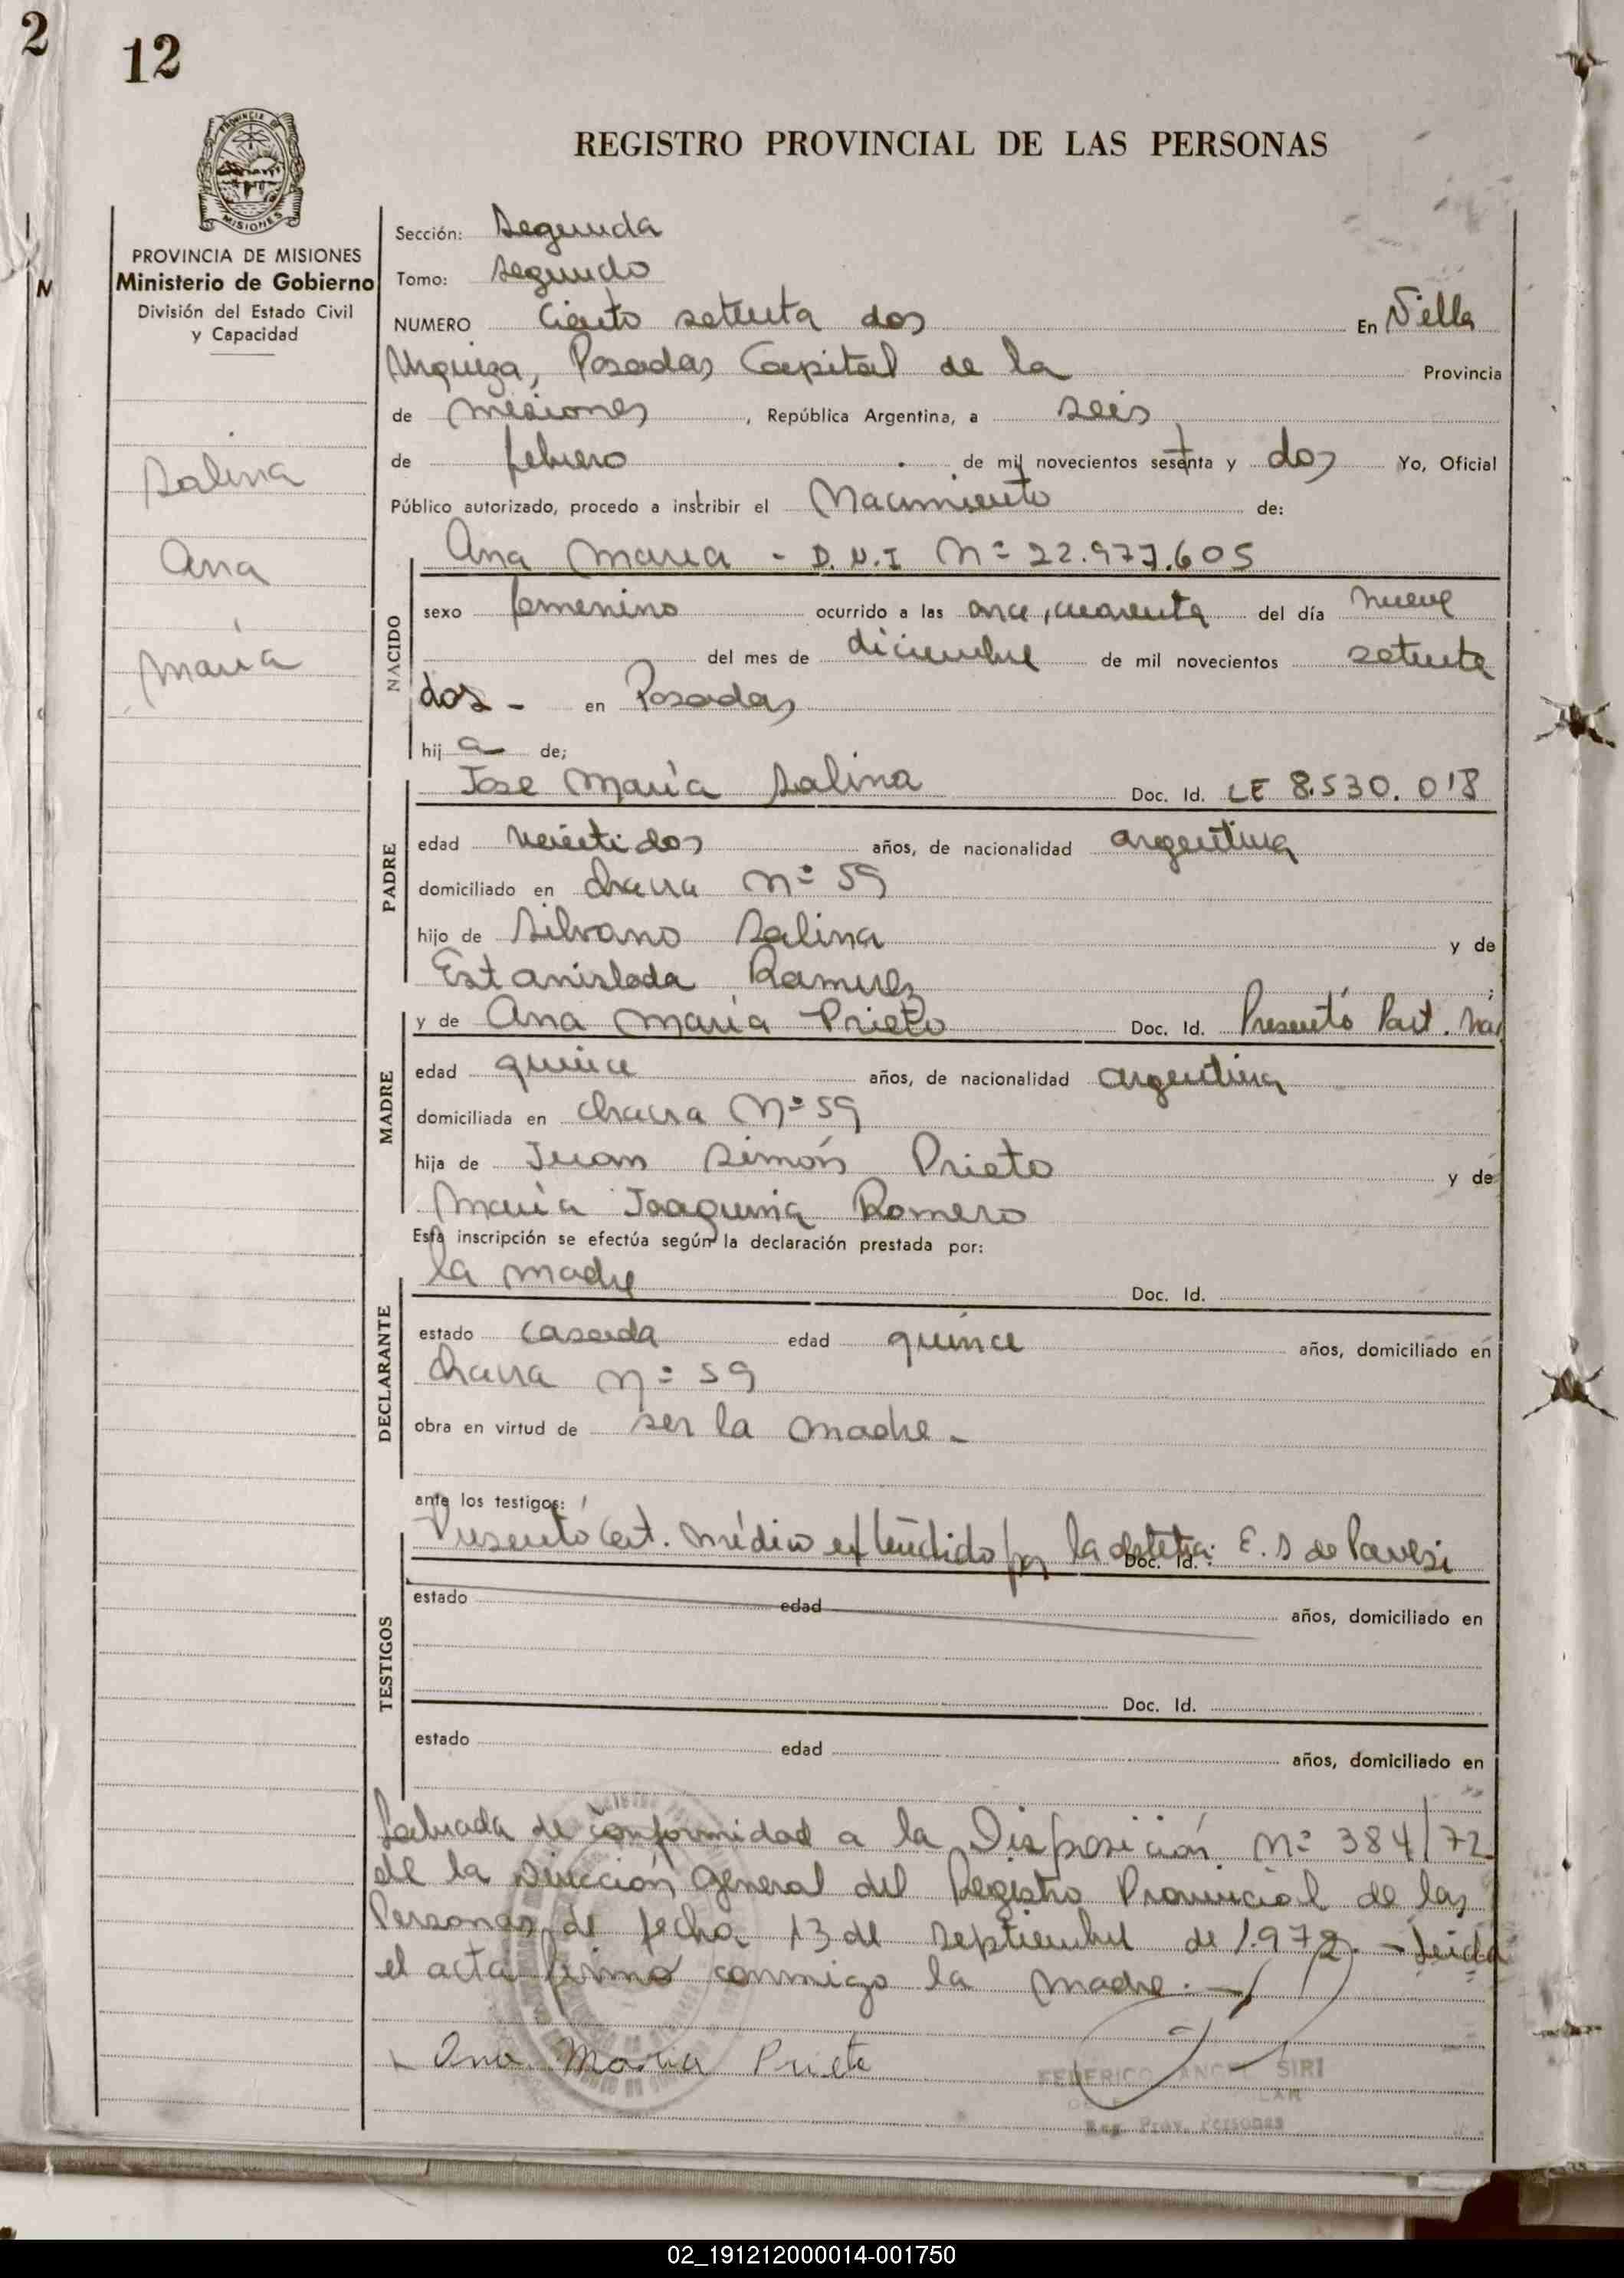 2
12
REGISTRO PROVINCIAL DE LAS PERSONAS
PROVINCIA DE MISIONES
Ministerio de Gobierno
División del Estado Civil
y Capacidad
N
Salina
Ana
María
Sección: Segunda
Tomo: Segundo
NUMERO Ciento setenta dos En Villa
Urquiza, Posadas Capital de la Provincia
de Misiones, República Argentina, a seis
de febrero de mil novecientos setenta y dos Yo, Oficial
Público autorizado, procedo a inscribir el Nacimiento de:
Ana Maria - D.N.I Nº 22.977.605
NACIDO
sexo femenino ocurrido a las once, cuarenta del día nueve
del mes de diciembre de mil novecientos setenta
dos - en Posadas
hija de;
Jose María Salina Doc. Id. LE 8.530.018
PADRE
edad veintidos años, de nacionalidad argentina
domiciliado en chacra Nº 59
hijo de Silvano Salina y de
Estanislada Ramirez ;
y de Ana María Prieto Doc. Id. Presentó Part. Nac
MADRE
edad quince años, de nacionalidad argentina
domiciliada en chacra Nº 59
hija de Juan Simón Prieto y de
María Joaquina Romero
Esta inscripción se efectúa según la declaración prestada por:
la madre Doc. Id.
DECLARANTE
estado casada edad quince años, domiciliado en
chacra Nº 59
obra en virtud de ser la madre -
ante los testigos:
Presentó Cert. médico extendido por la obstetra: E. S de Pavesi Doc. Id.
TESTIGOS
estado edad años, domiciliado en
Doc. Id.
estado edad años, domiciliado en
labrada de conformidad a la Disposición Nº 384/72
de la Dirección General del Registro Provincial de las
Personas de fecha 13 de septiembre de 1.972. - Leida
el acta firmó conmigo la madre. -
Ana Maria Prieto
FEDERICO ANGEL SIRI
Reg. Prov. Personas
02_191212000014-001750